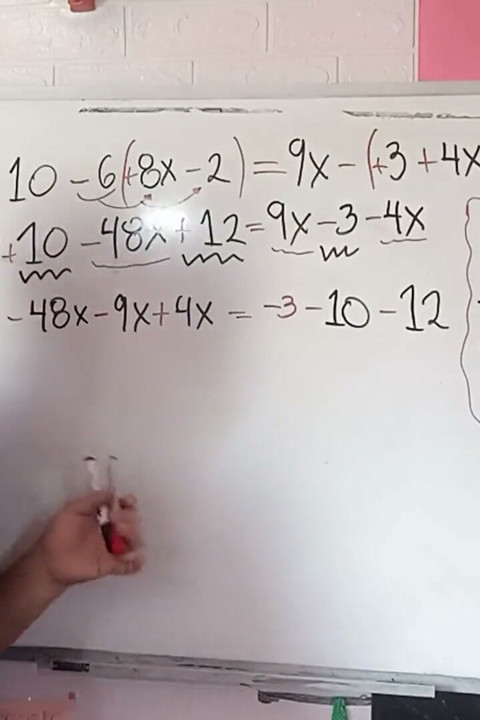 10 - 6(+8x - 2) = 9x - (+3 + 4x
+10 - 48x + 12 = 9x - 3 - 4x
- 48x - 9x + 4x = -3 - 10 - 12